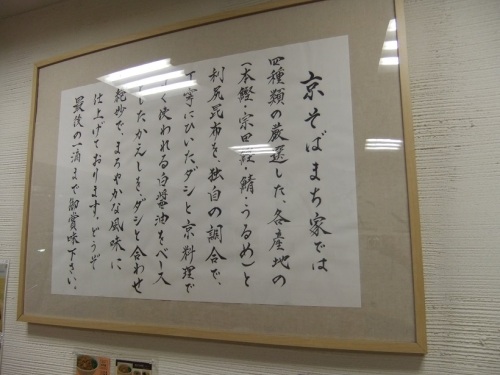 京そばまち家では
四種類の厳選した、各産地の
(本鰹・宗田鰹・鯖・うるめ)と
利尻昆布を、独自の調合で、
丁寧にひいたダシと京料理で
よく使われる白醤油をベース
にしたかえしをダシと合わせ
絶妙で、まろやかな風味に
仕上げております。どうぞ
最後の一滴まで御賞味下さい。